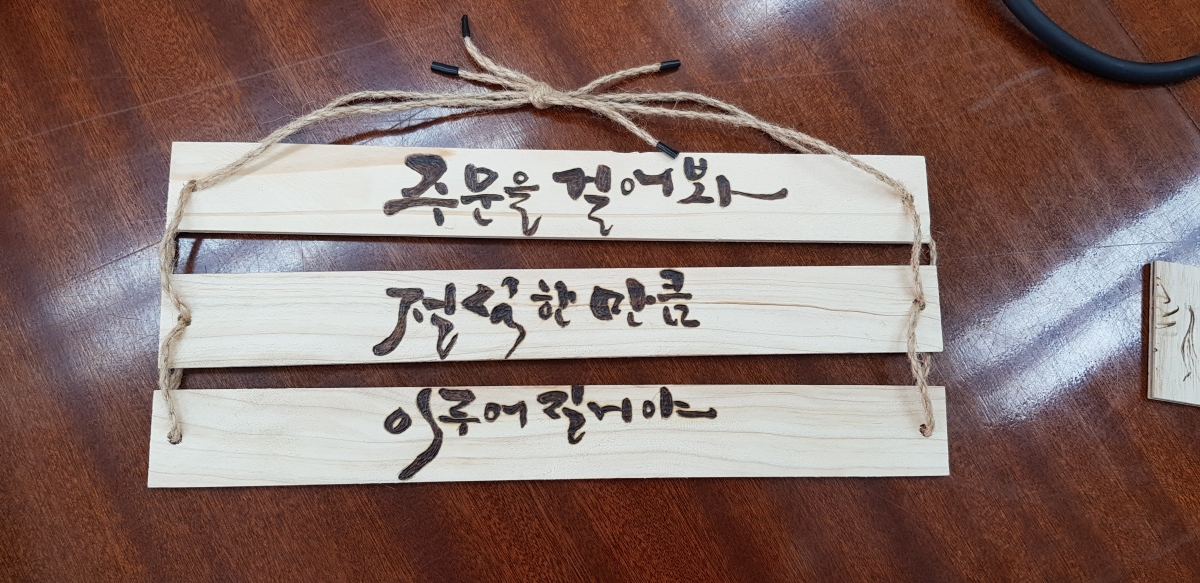 주문을 걸어봐
절실한 만큼
이루어 질거야